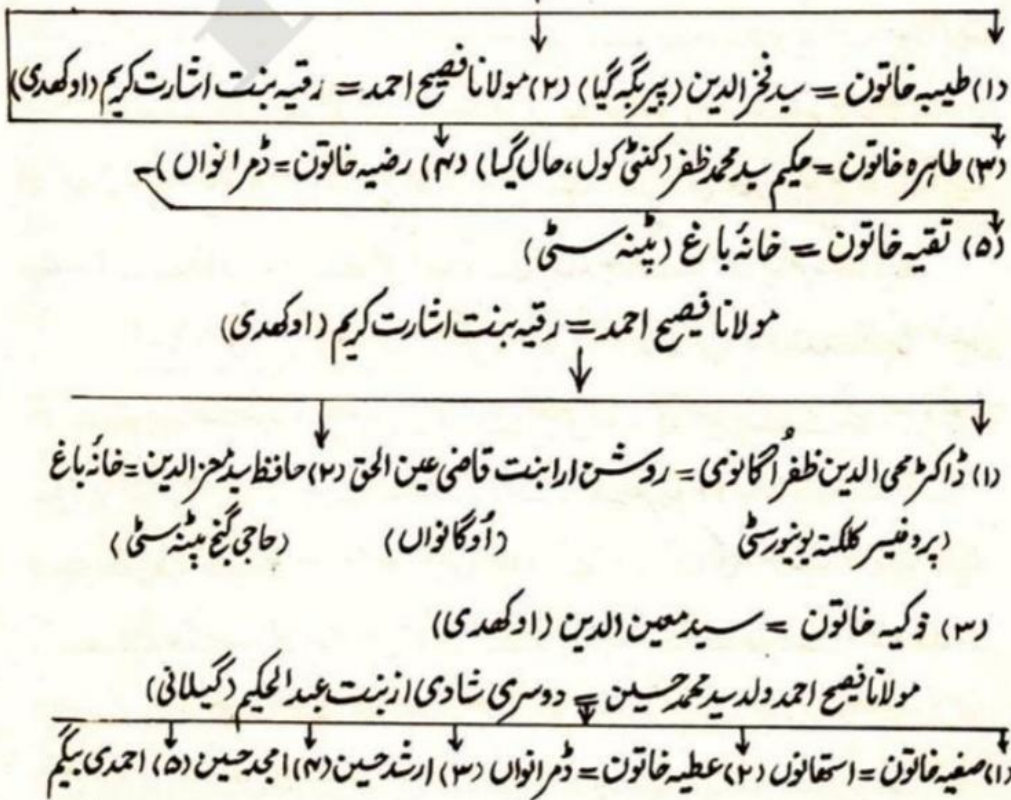 (۱) طیبہ خاتون = سید فخرالدین (پیربگہ گیا) (۲) مولانا فصیح احمد = رقیہ بنت اشارت کریم (اوکھدی)
(۳) طاہرہ خاتون = حکیم سید محمد ظفر (کنٹی کول، حال گیا) (۴) رضیہ خاتون = ڈمرانواں)
(۵) تقیہ خاتون = خانۂ باغ (پٹنہ سٹی)
مولانا فصیح احمد = رقیہ بنت اشارت کریم (اوکھدی)
(۱) ڈاکٹر محی الدین ظفر اُگانوی = روشن ارا بنت قاضی عین الحق (۲) حافظ سید معزالدین = خانۂ باغ
(پروفیسر کلکتہ یونیورسٹی (اُوگانواں) (حاجی گنج پٹنہ سٹی)
(۳) ذکیہ خاتون = سید معین الدین (اوکھدی)
مولانا فصیح احمد ولد سید محمد حسین = دوسری شادی از بنت عبدالحکیم (گیلانی)
(۱) صفیہ خاتون = استھانوں (۲) عطیہ خاتون = ڈمرانواں (۳) ارشد حسین (۴) امجد حسین (۵) احمدی بیگم